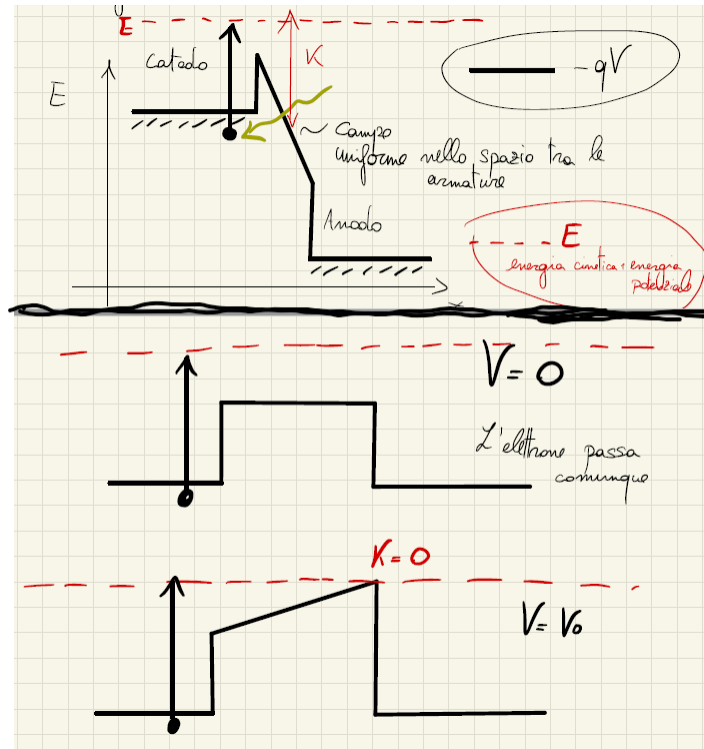 E
Catodo
K
- qV
E
~ Campo
uniforme nello spazio tra le
armature
Anodo
E
energia cinetica + energia
potenziale
x
V = 0
L'elettrone passa
comunque
K = 0
V = V₀